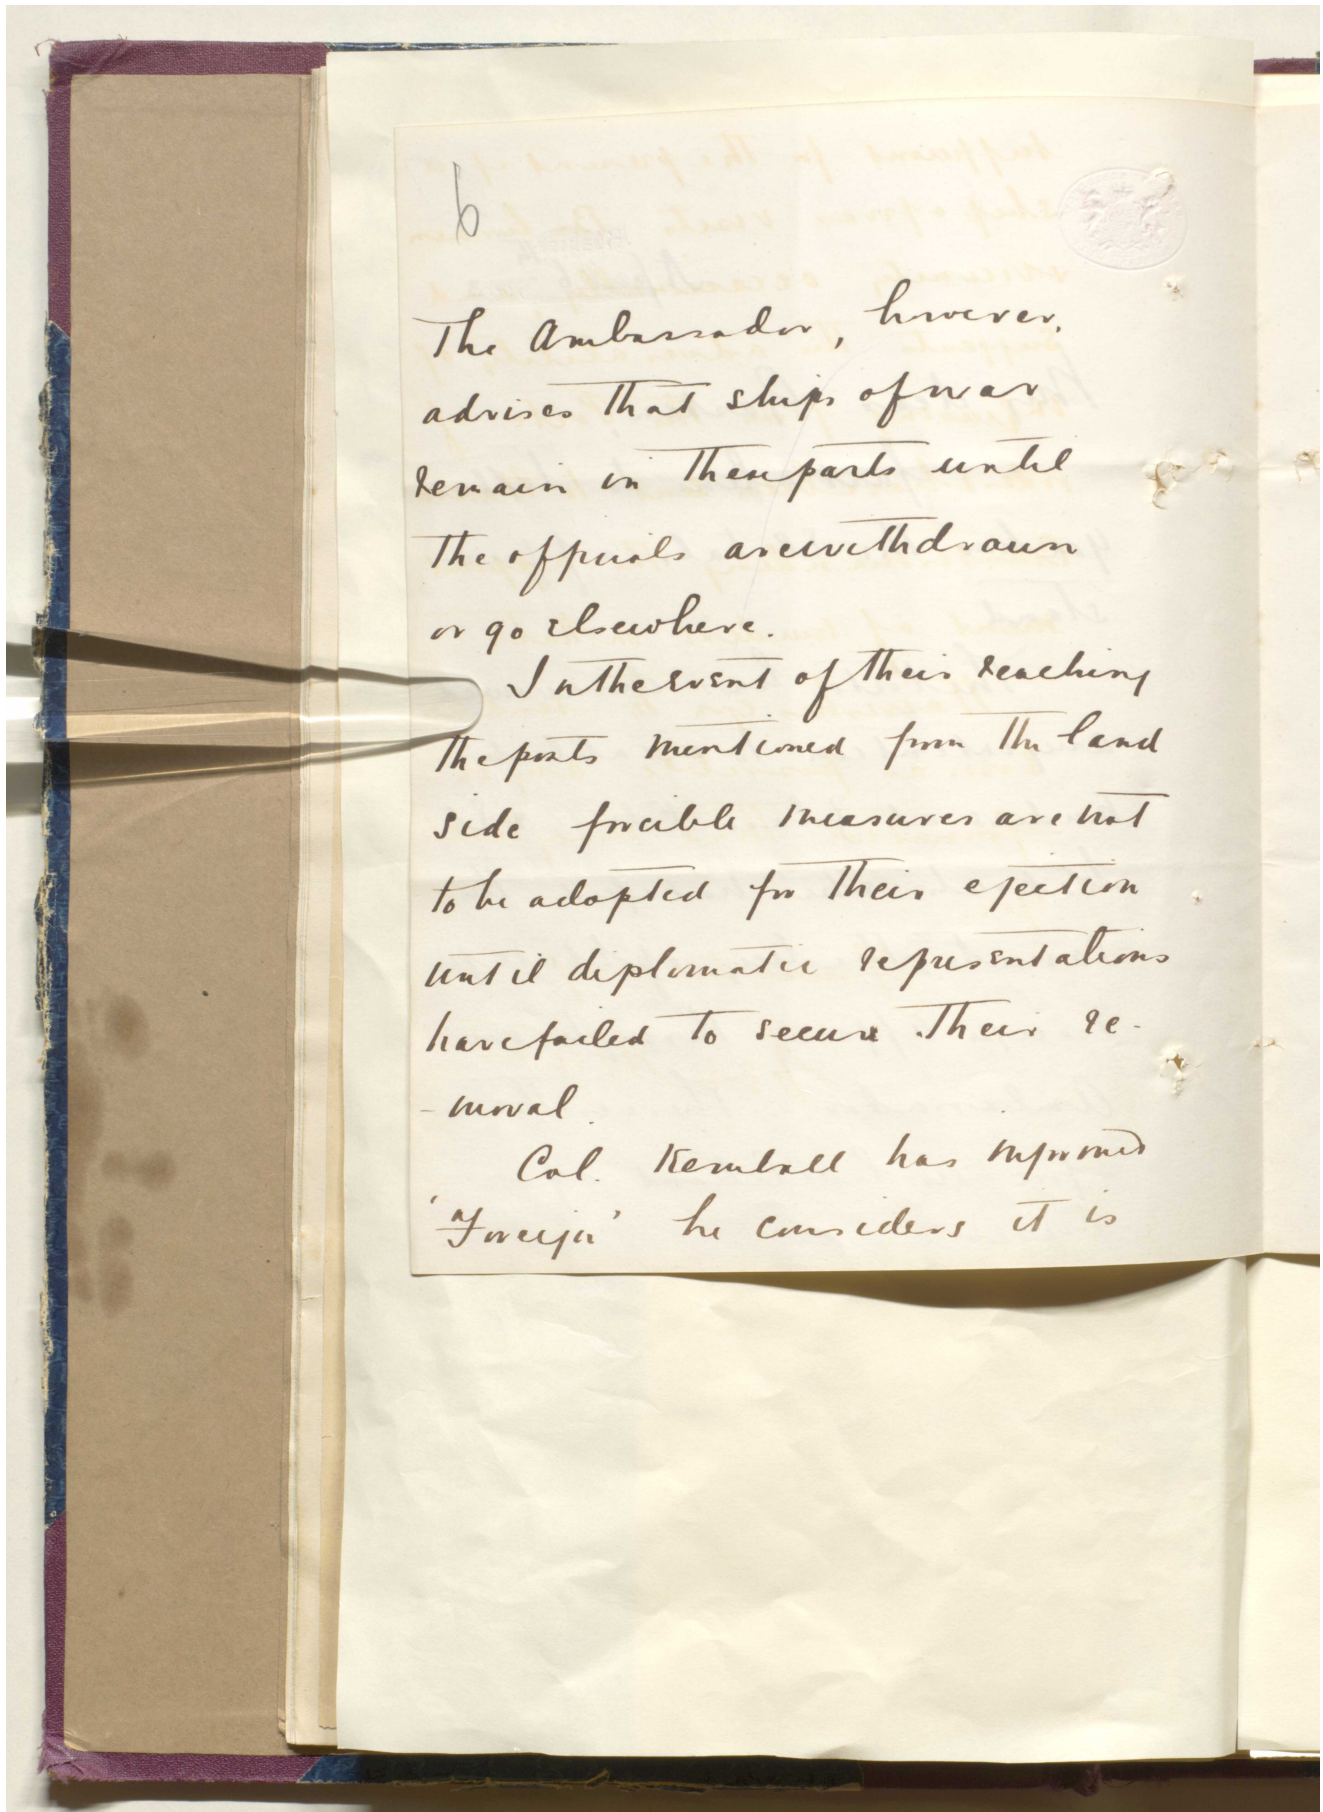 6
The Ambassador, however,
advises that ships of war
remain in these parts until
the officials are withdrawn
or go elsewhere.
In the event of their reaching
the ports mentioned from the land
side forcible measures are not
to be adopted for their ejection
until diplomatic representations
have failed to secure their re-
-moval.
Col. Kemball has informed
'Foreign' he considers it is